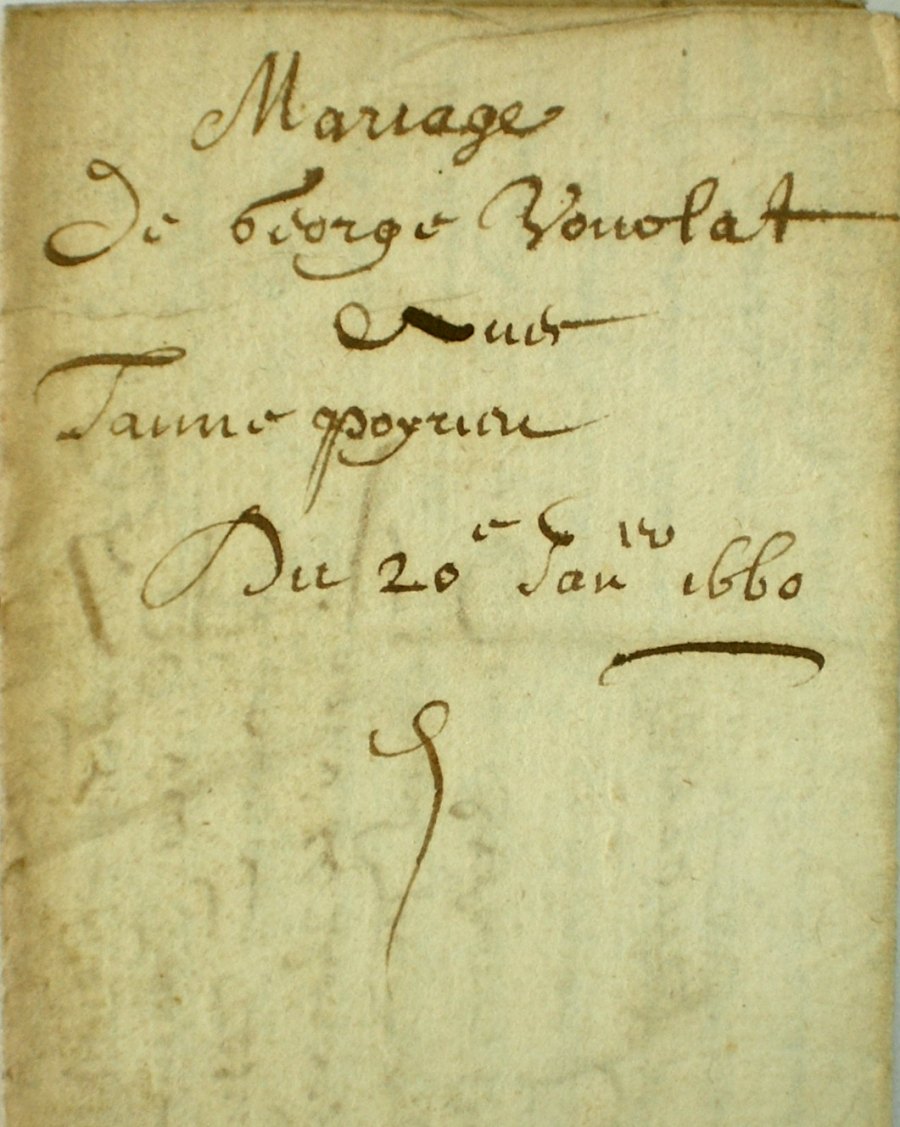 Mariage
De George Vouolat
Auec
Janne poyrieu
Du 20e Janier 1660